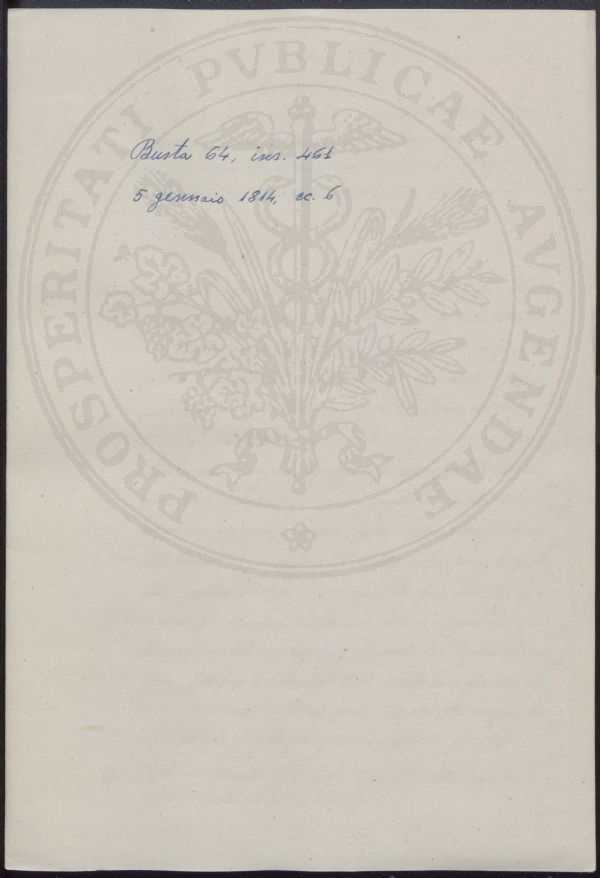 Busta 64, ins. 461
5 gennaio 1814, cc. 6
PROSPERITATI PVBLICAE AVGENDAE